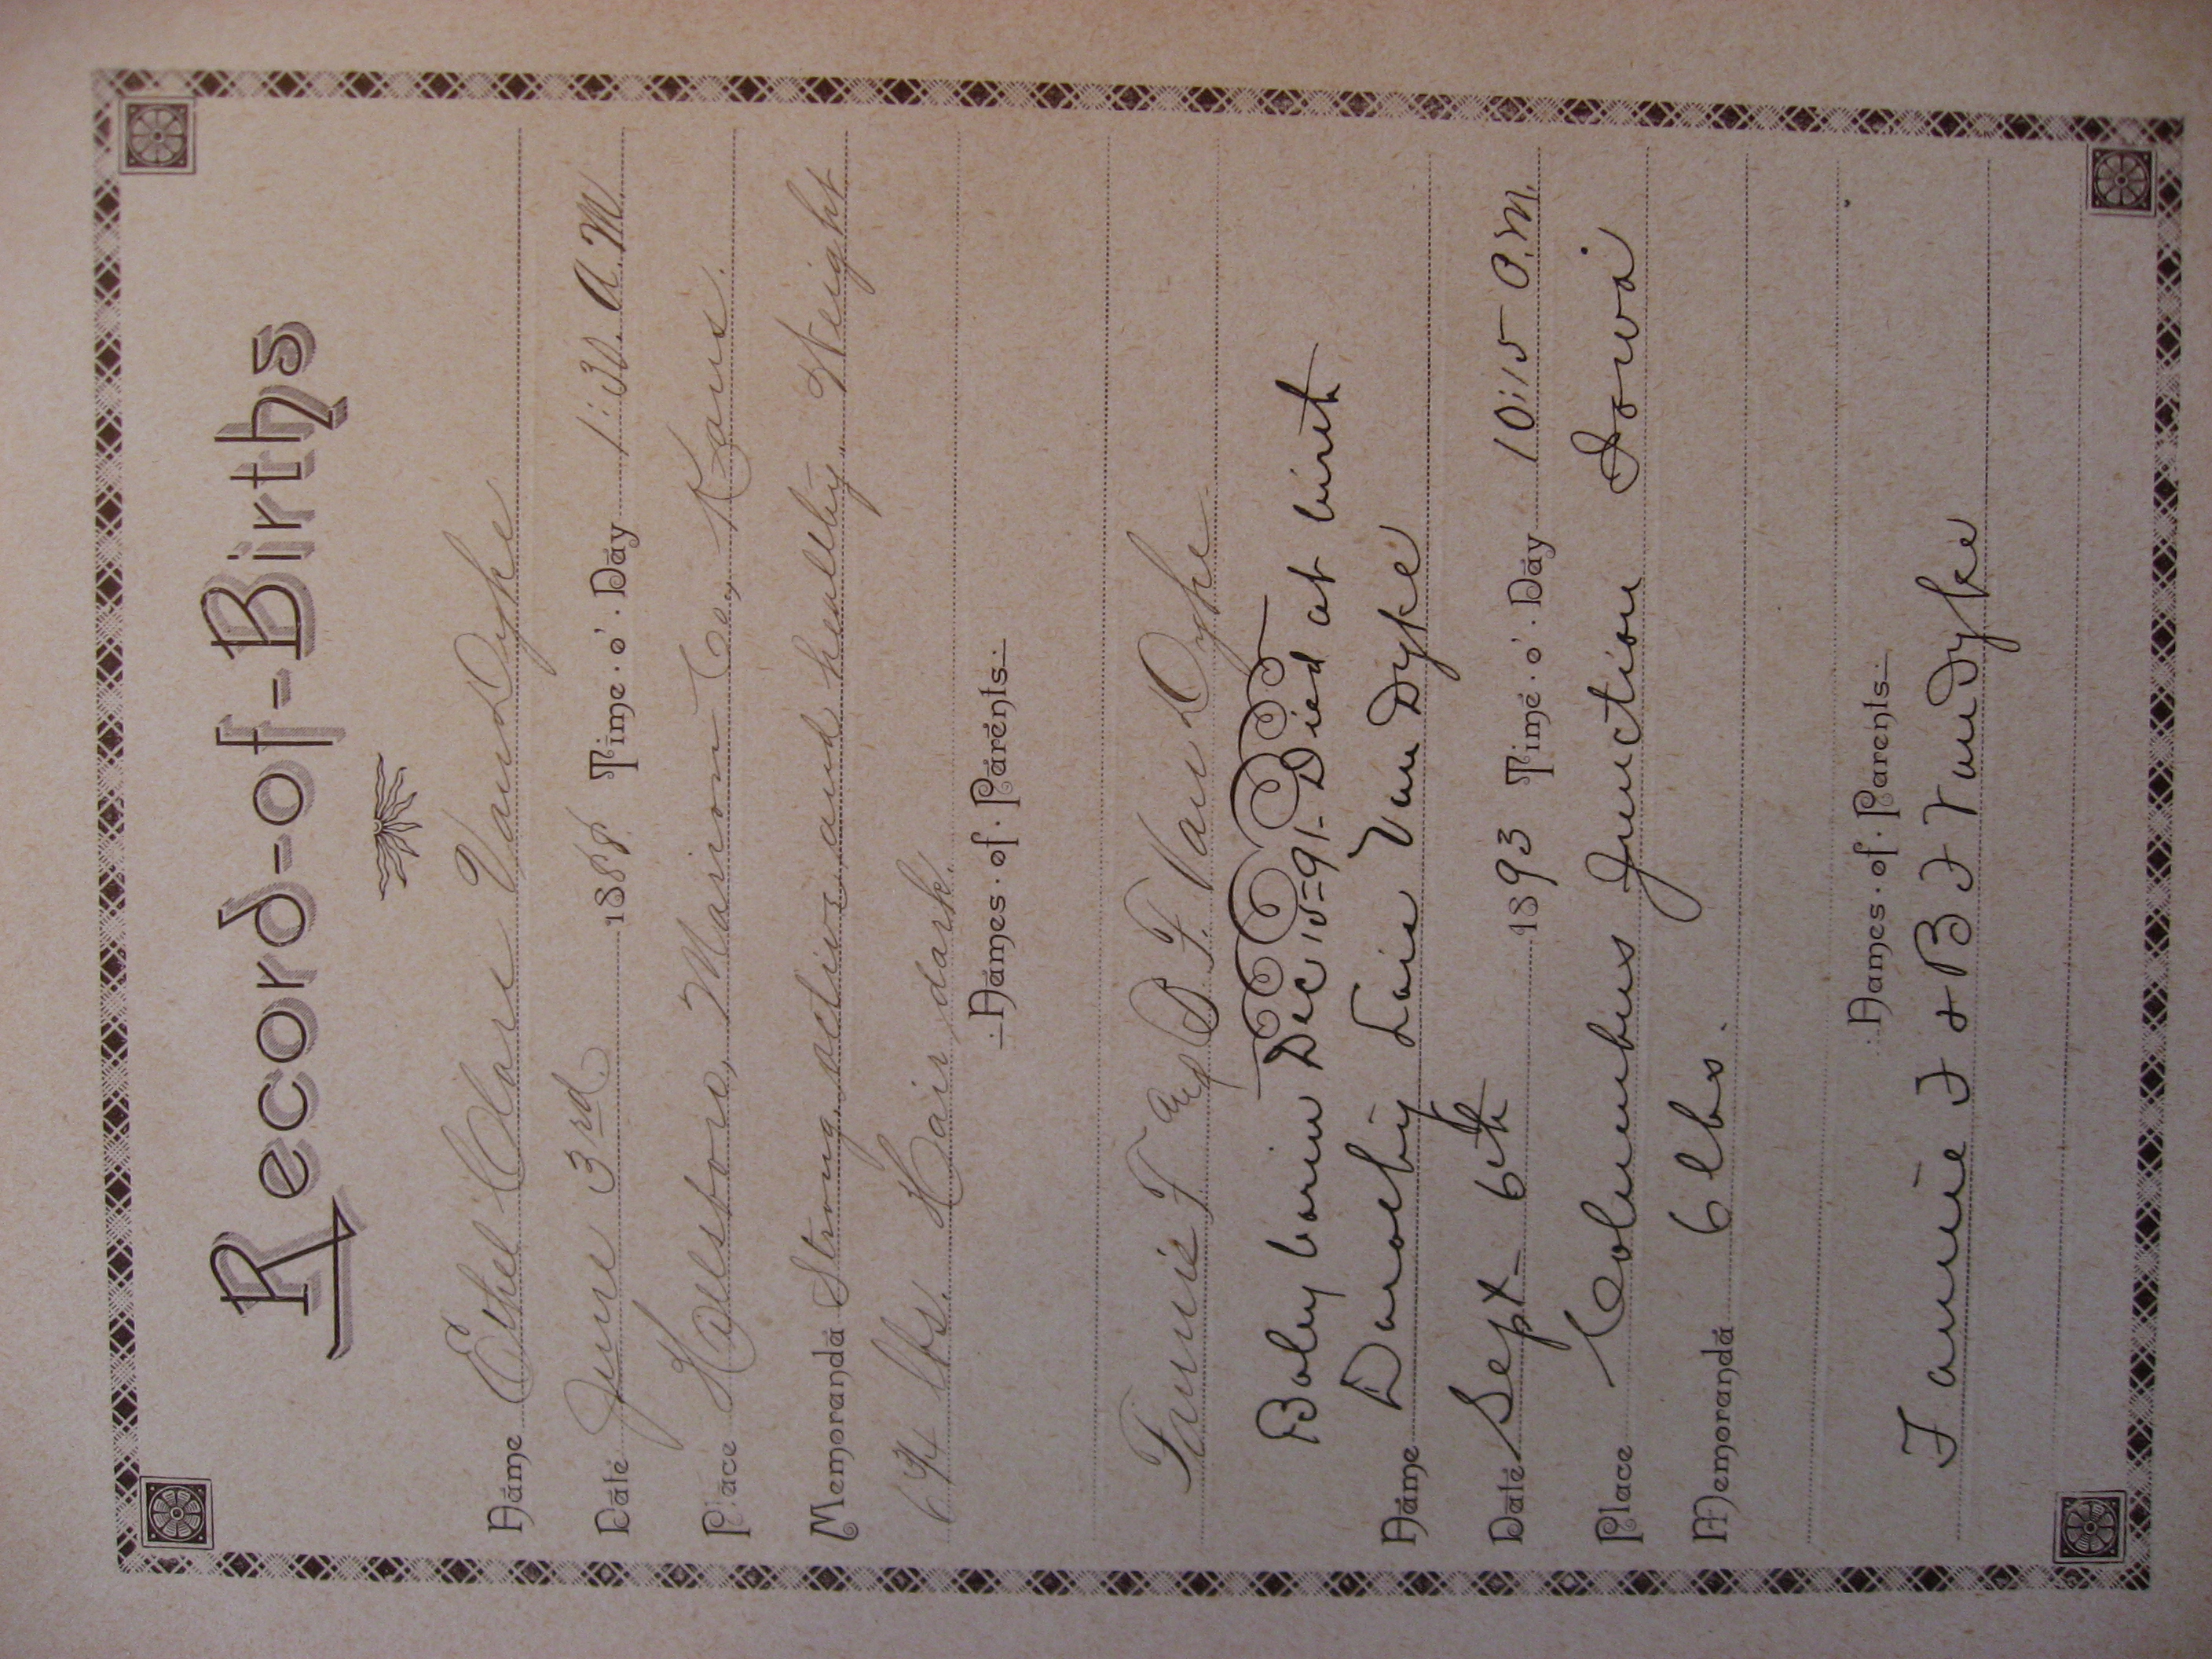 Record-of-Births
Name Ethel Clare VanDyke
Date June 3rd 1888 Time·o'·Day 1:30. A.M.
Place Hillsboro, Marion Co., Kans.
Memoranda Strong, active, and healthy. Weight
6¾ lbs. Hair dark.
Names·of·Parents
Fannie F. and B. F. Van Dyke
Baby born Dec 15=91- Died at birth
Name Dorothy Laie Van Dyke
Date Sept- 6th 1893 Time·o'·Day 10:15 P.M.
Place Columbus Junction Iowa
Memoranda 6 lbs.
Names·of·Parents
Fannie F & B F Vandyke